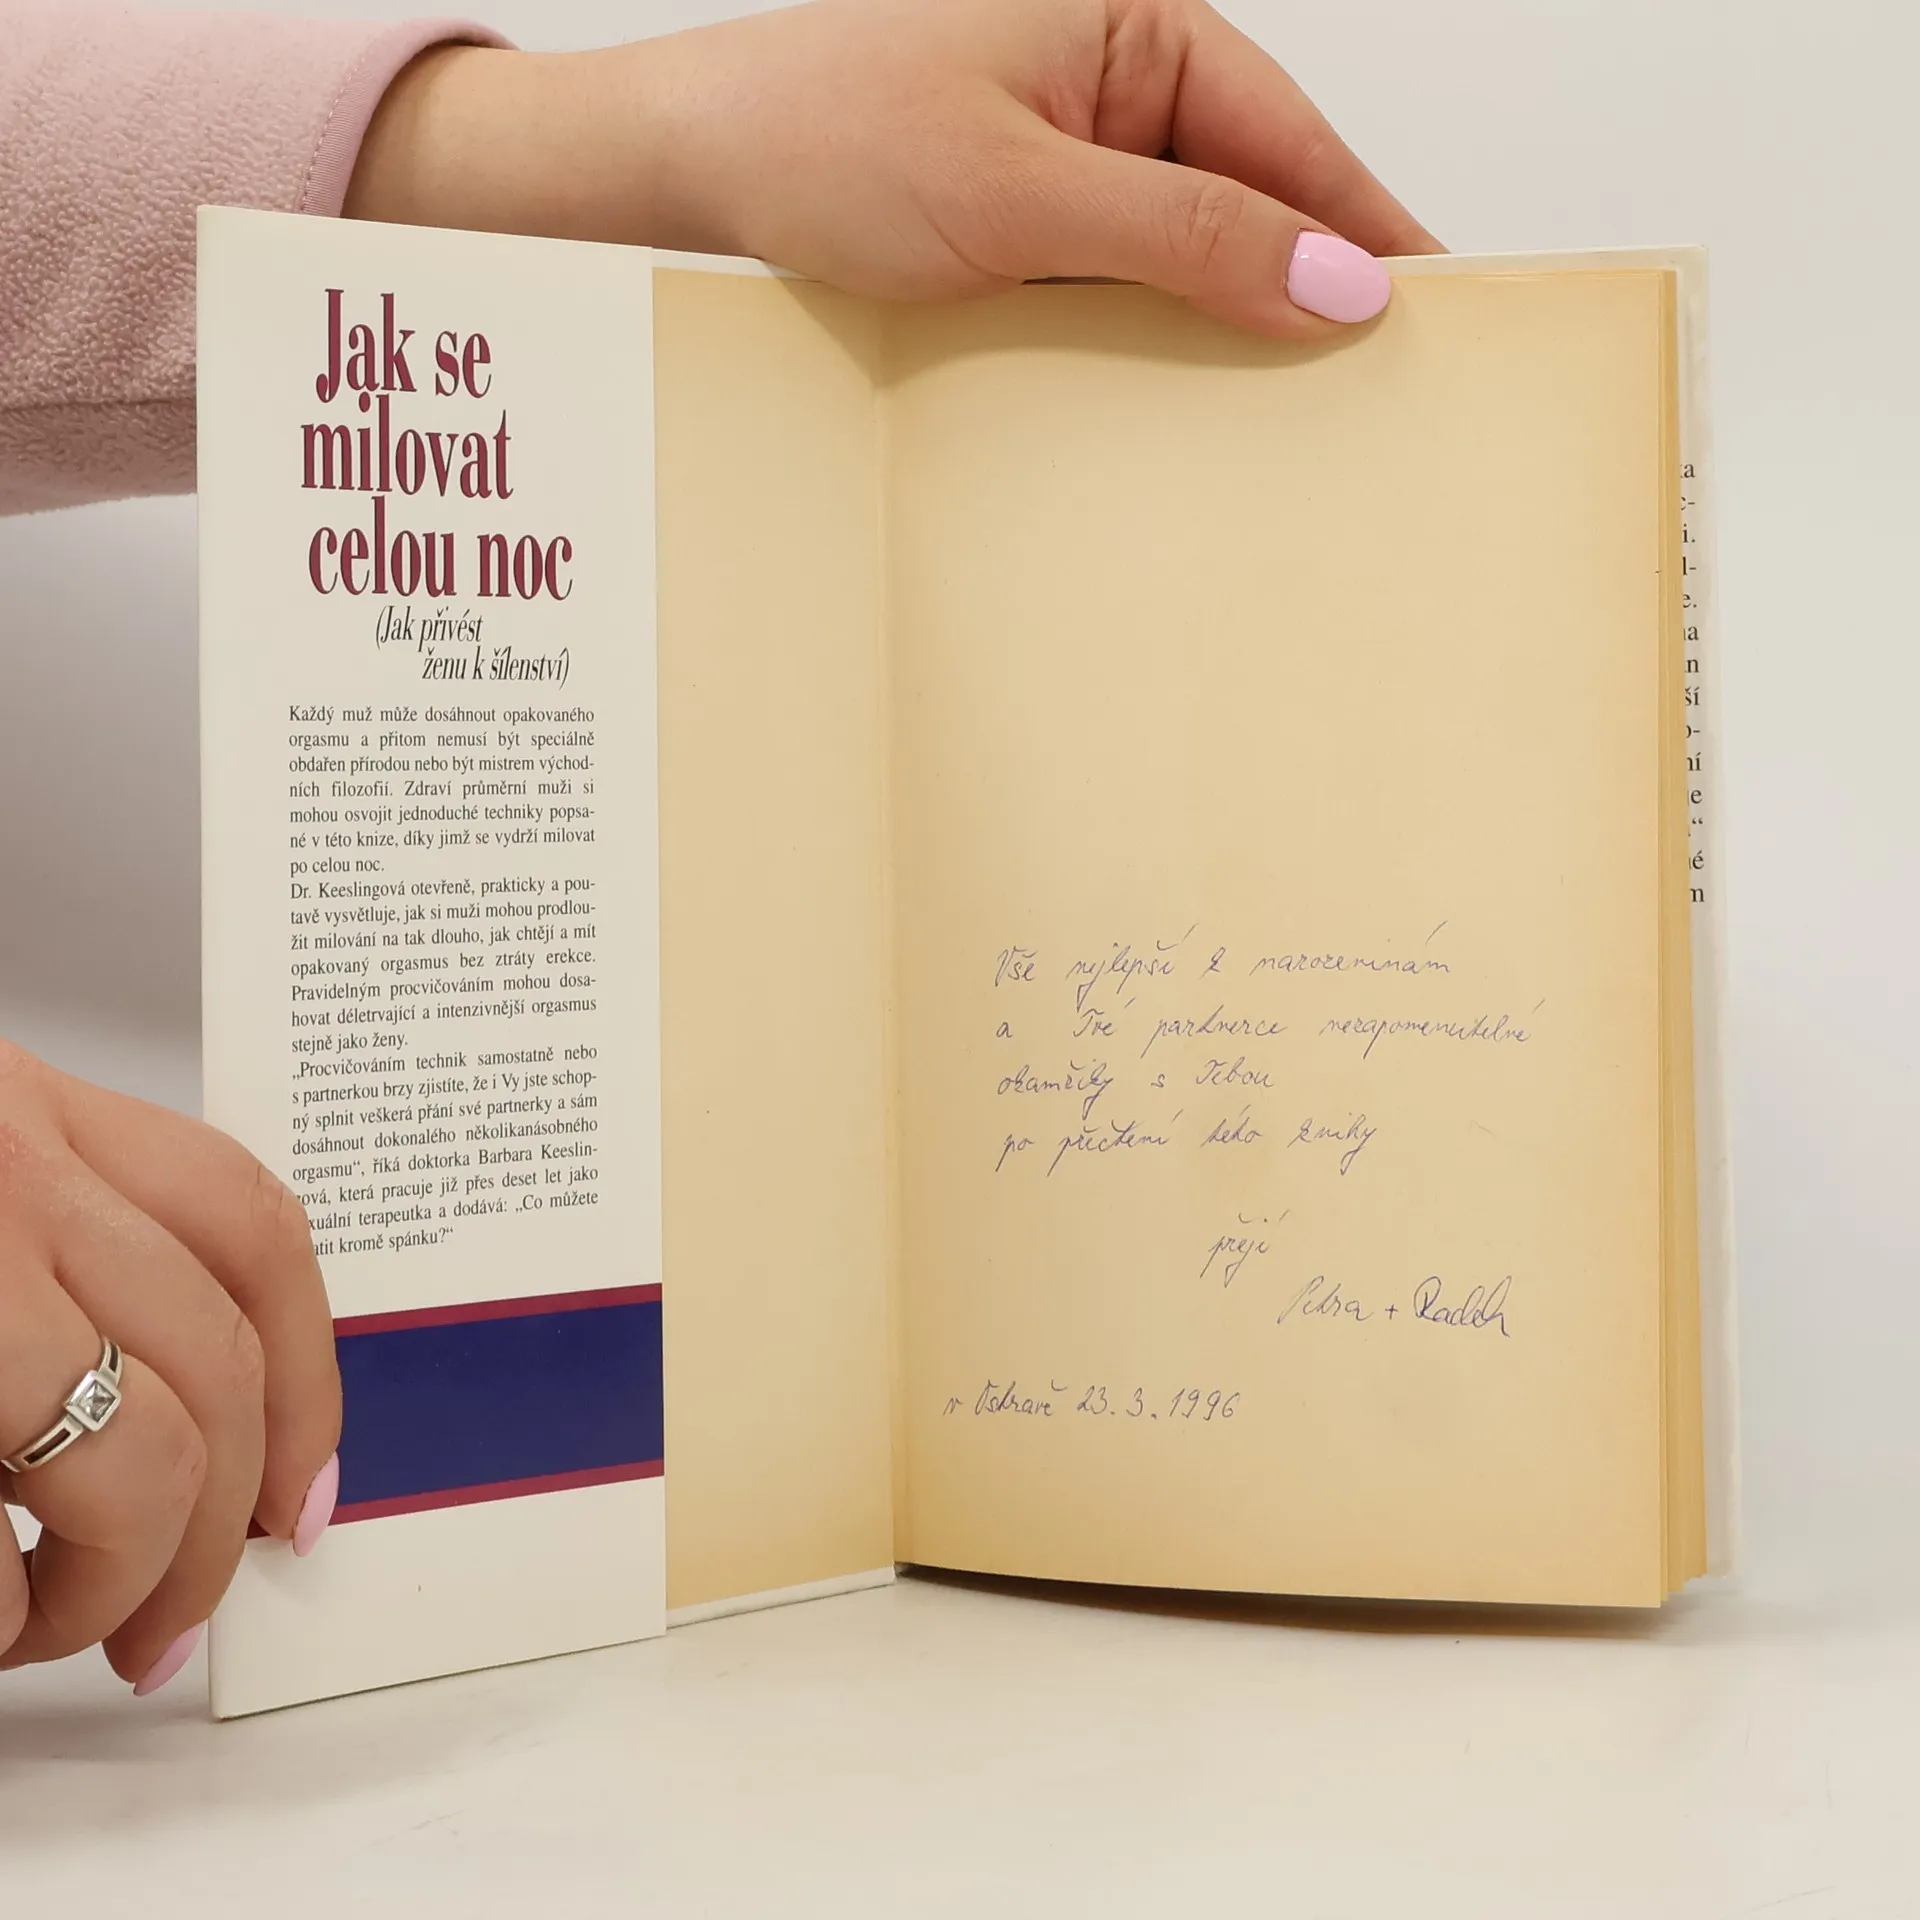 Jak se
milovat
celou noc
(Jak přivést
ženu k šílenství)
Každý muž může dosáhnout opakovaného
orgasmu a přitom nemusí být speciálně
obdařen přírodou nebo být mistrem východ-
ních filozofií. Zdraví průměrní muži si
mohou osvojit jednoduché techniky popsa-
né v této knize, díky jimž se vydrží milovat
po celou noc.
Dr. Keeslingová otevřeně, prakticky a pou-
tavě vysvětluje, jak si muži mohou prodlou-
žit milování na tak dlouho, jak chtějí a mít
opakovaný orgasmus bez ztráty erekce.
Pravidelným procvičováním mohou dosa-
hovat déletrvající a intenzivnější orgasmus
stejně jako ženy.
„Procvičováním technik samostatně nebo
s partnerkou brzy zjistíte, že i Vy jste schop-
ný splnit veškerá přání své partnerky a sám
dosáhnout dokonalého několikanásobného
orgasmu“, říká doktorka Barbara Keeslin-
gová, která pracuje již přes deset let jako
xuální terapeutka a dodává: „Co můžete
atit kromě spánku?“
Vše nejlepší k narozeninám
a Tvé partnerce nezapomenutelné
okamžiky s Tebou
po přečtení této knihy
přejí
Petra + Radek
v Ostravě 23.3.1996
ka
c-
i.
l-
e.
na
n
ší
o-
ní
je
“
né
m